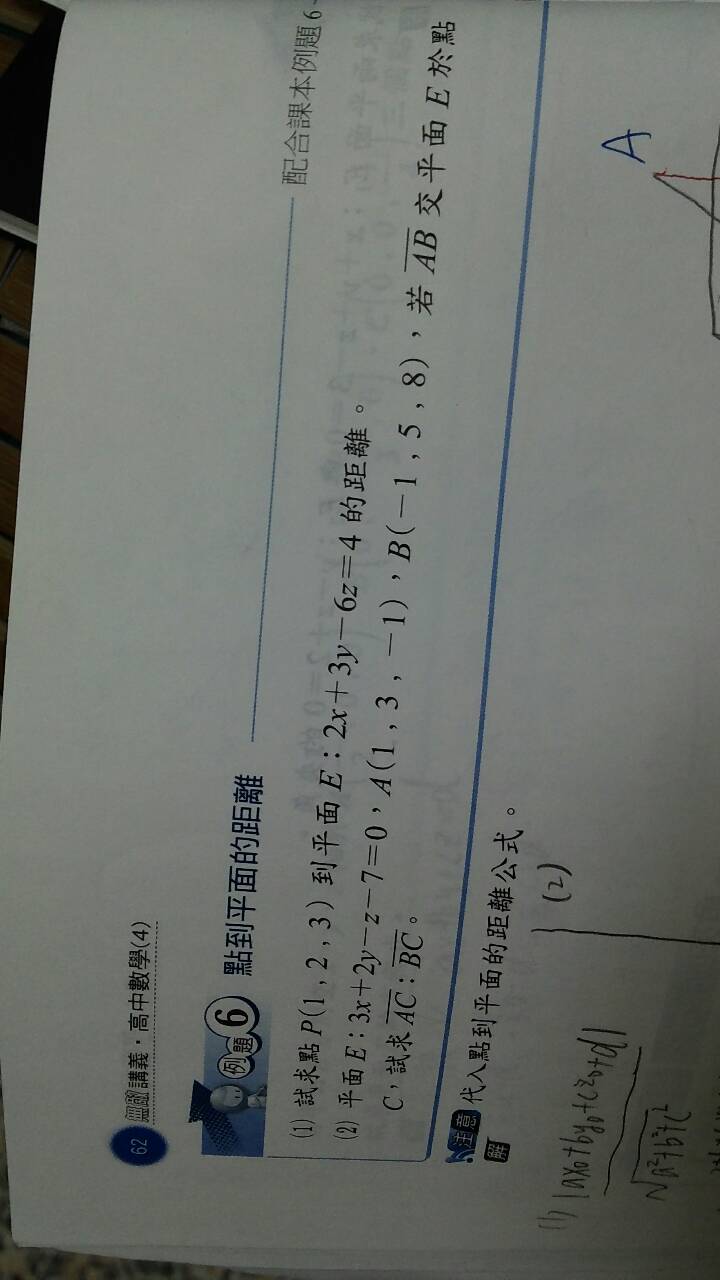 62 無敵講義．高中數學(4)
例題 6 點到平面的距離 配合課本例題6
(1) 試求點 P(1 , 2 , 3) 到平面 E：2x＋3y－6z＝4 的距離。
(2) 平面 E：3x＋2y－z－7＝0，A(1 , 3 , －1)，B(－1 , 5 , 8)，若 \overline{AB} 交平面 E 於點
C，試求 \overline{AC}：\overline{BC}。
注意 代入點到平面的距離公式。
解
(1) |ax₀+by₀+cz₀+d|
√a²+b²+c²
(2)
A